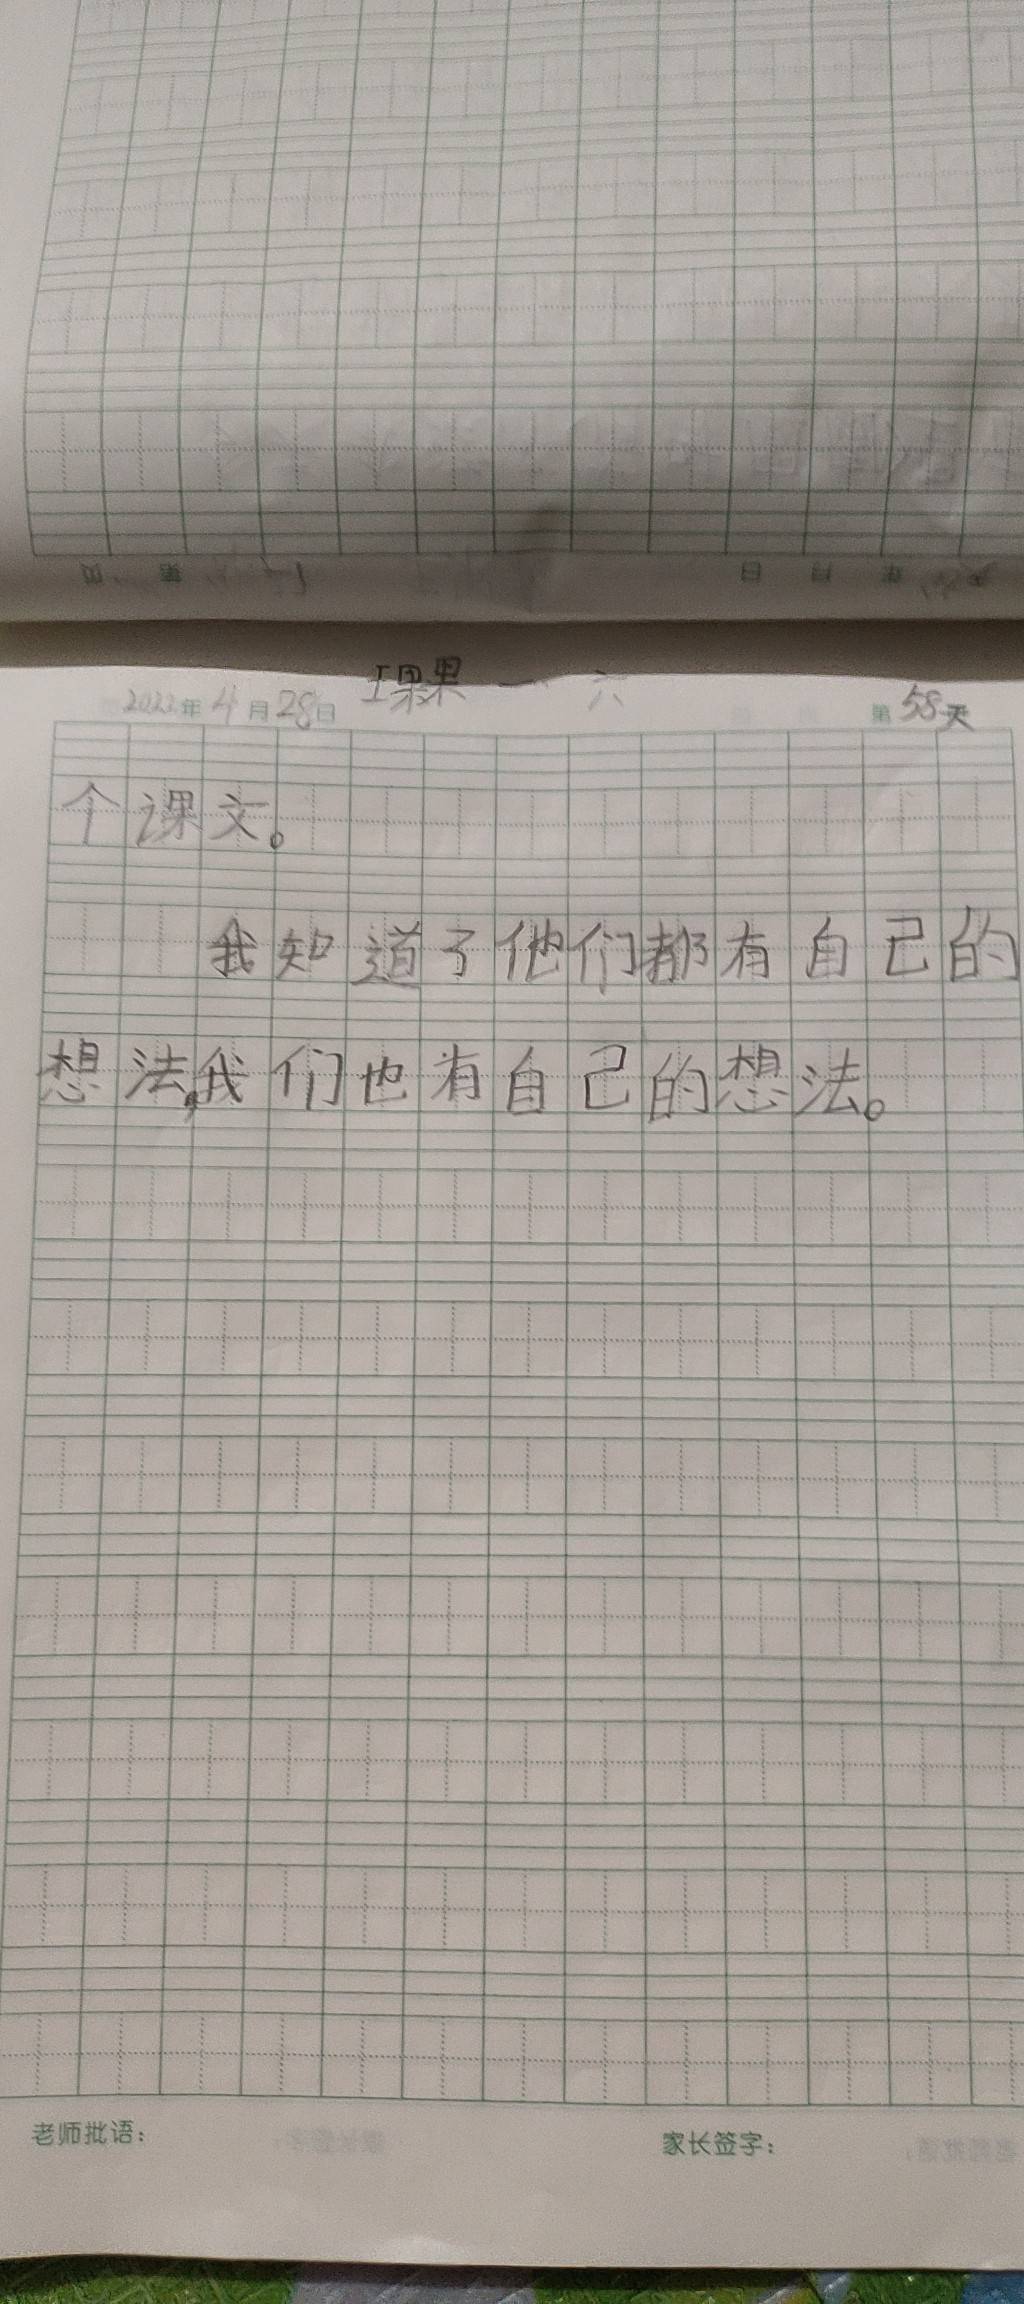 2022年4月28日 王果果 一 六 第58天
个课文。
我知道了他们都有自己的
想法,我们也有自己的想法。
老师批语: 家长签字: